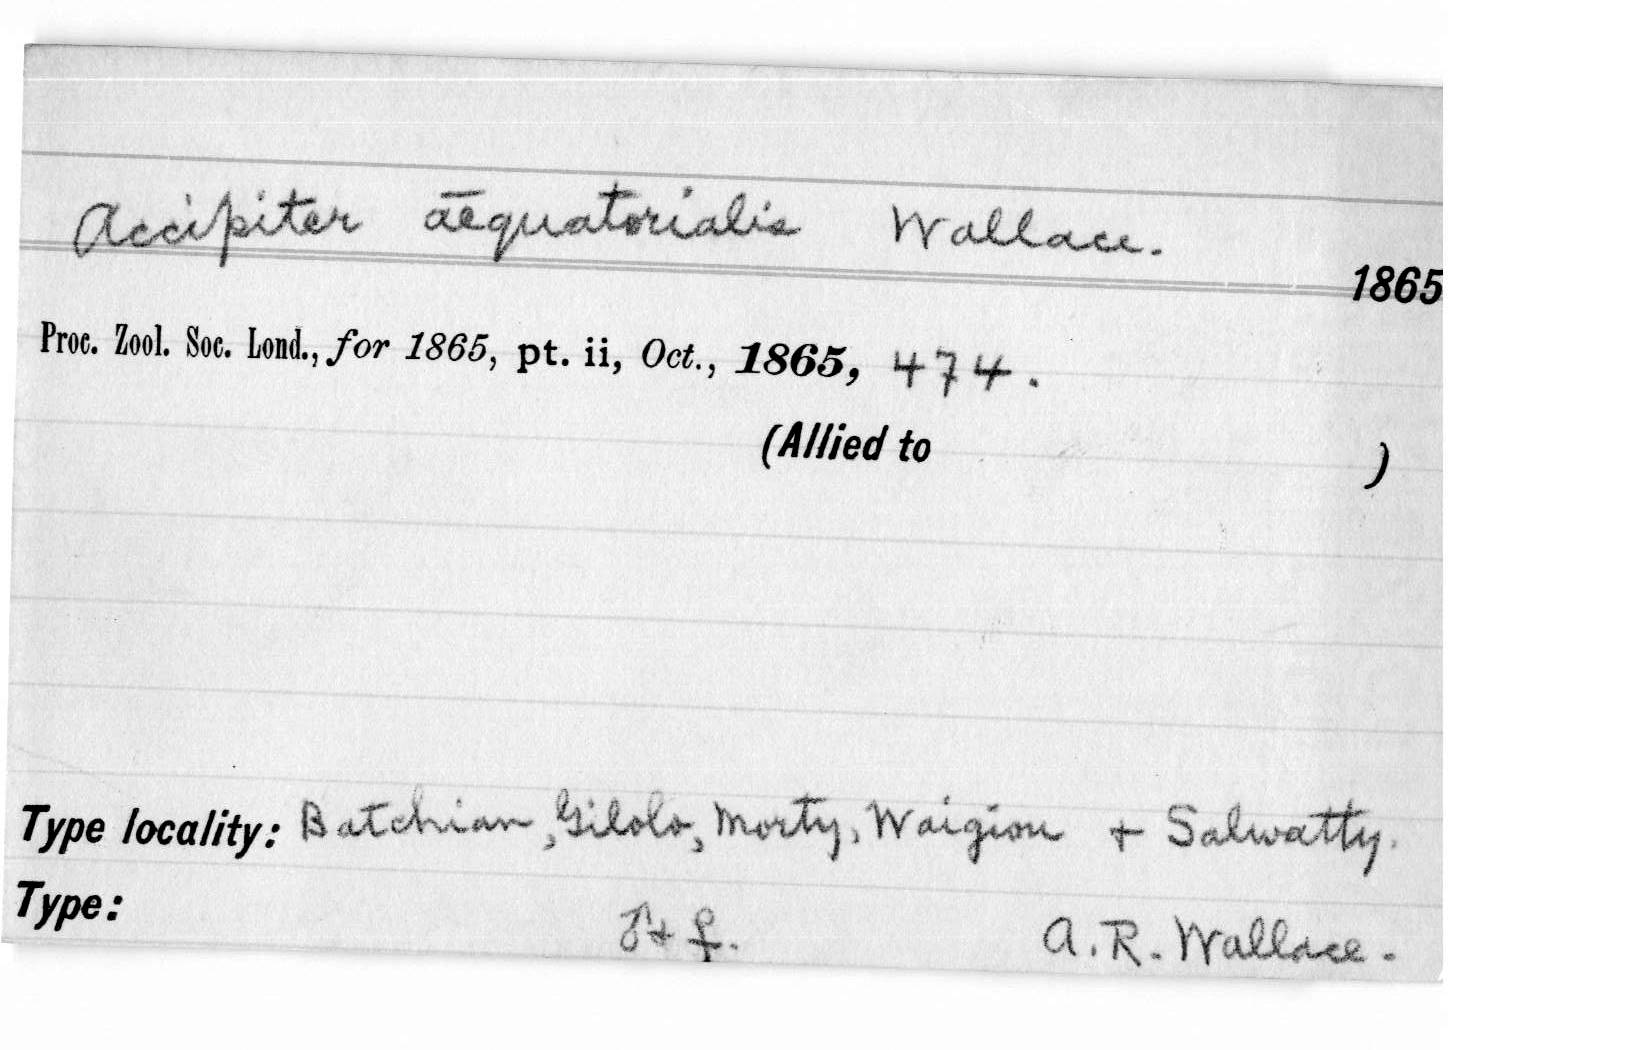 Accipiter aequatorialis Wallace.
1865
Proc. Zool. Soc. Lond., for 1865, pt. ii, Oct., 1865, 474.
(Allied to )
Type locality: Batchian, Gilolo, Morty, Waigiou + Salwatty.
Type: ♂ + ♀. A. R. Wallace.